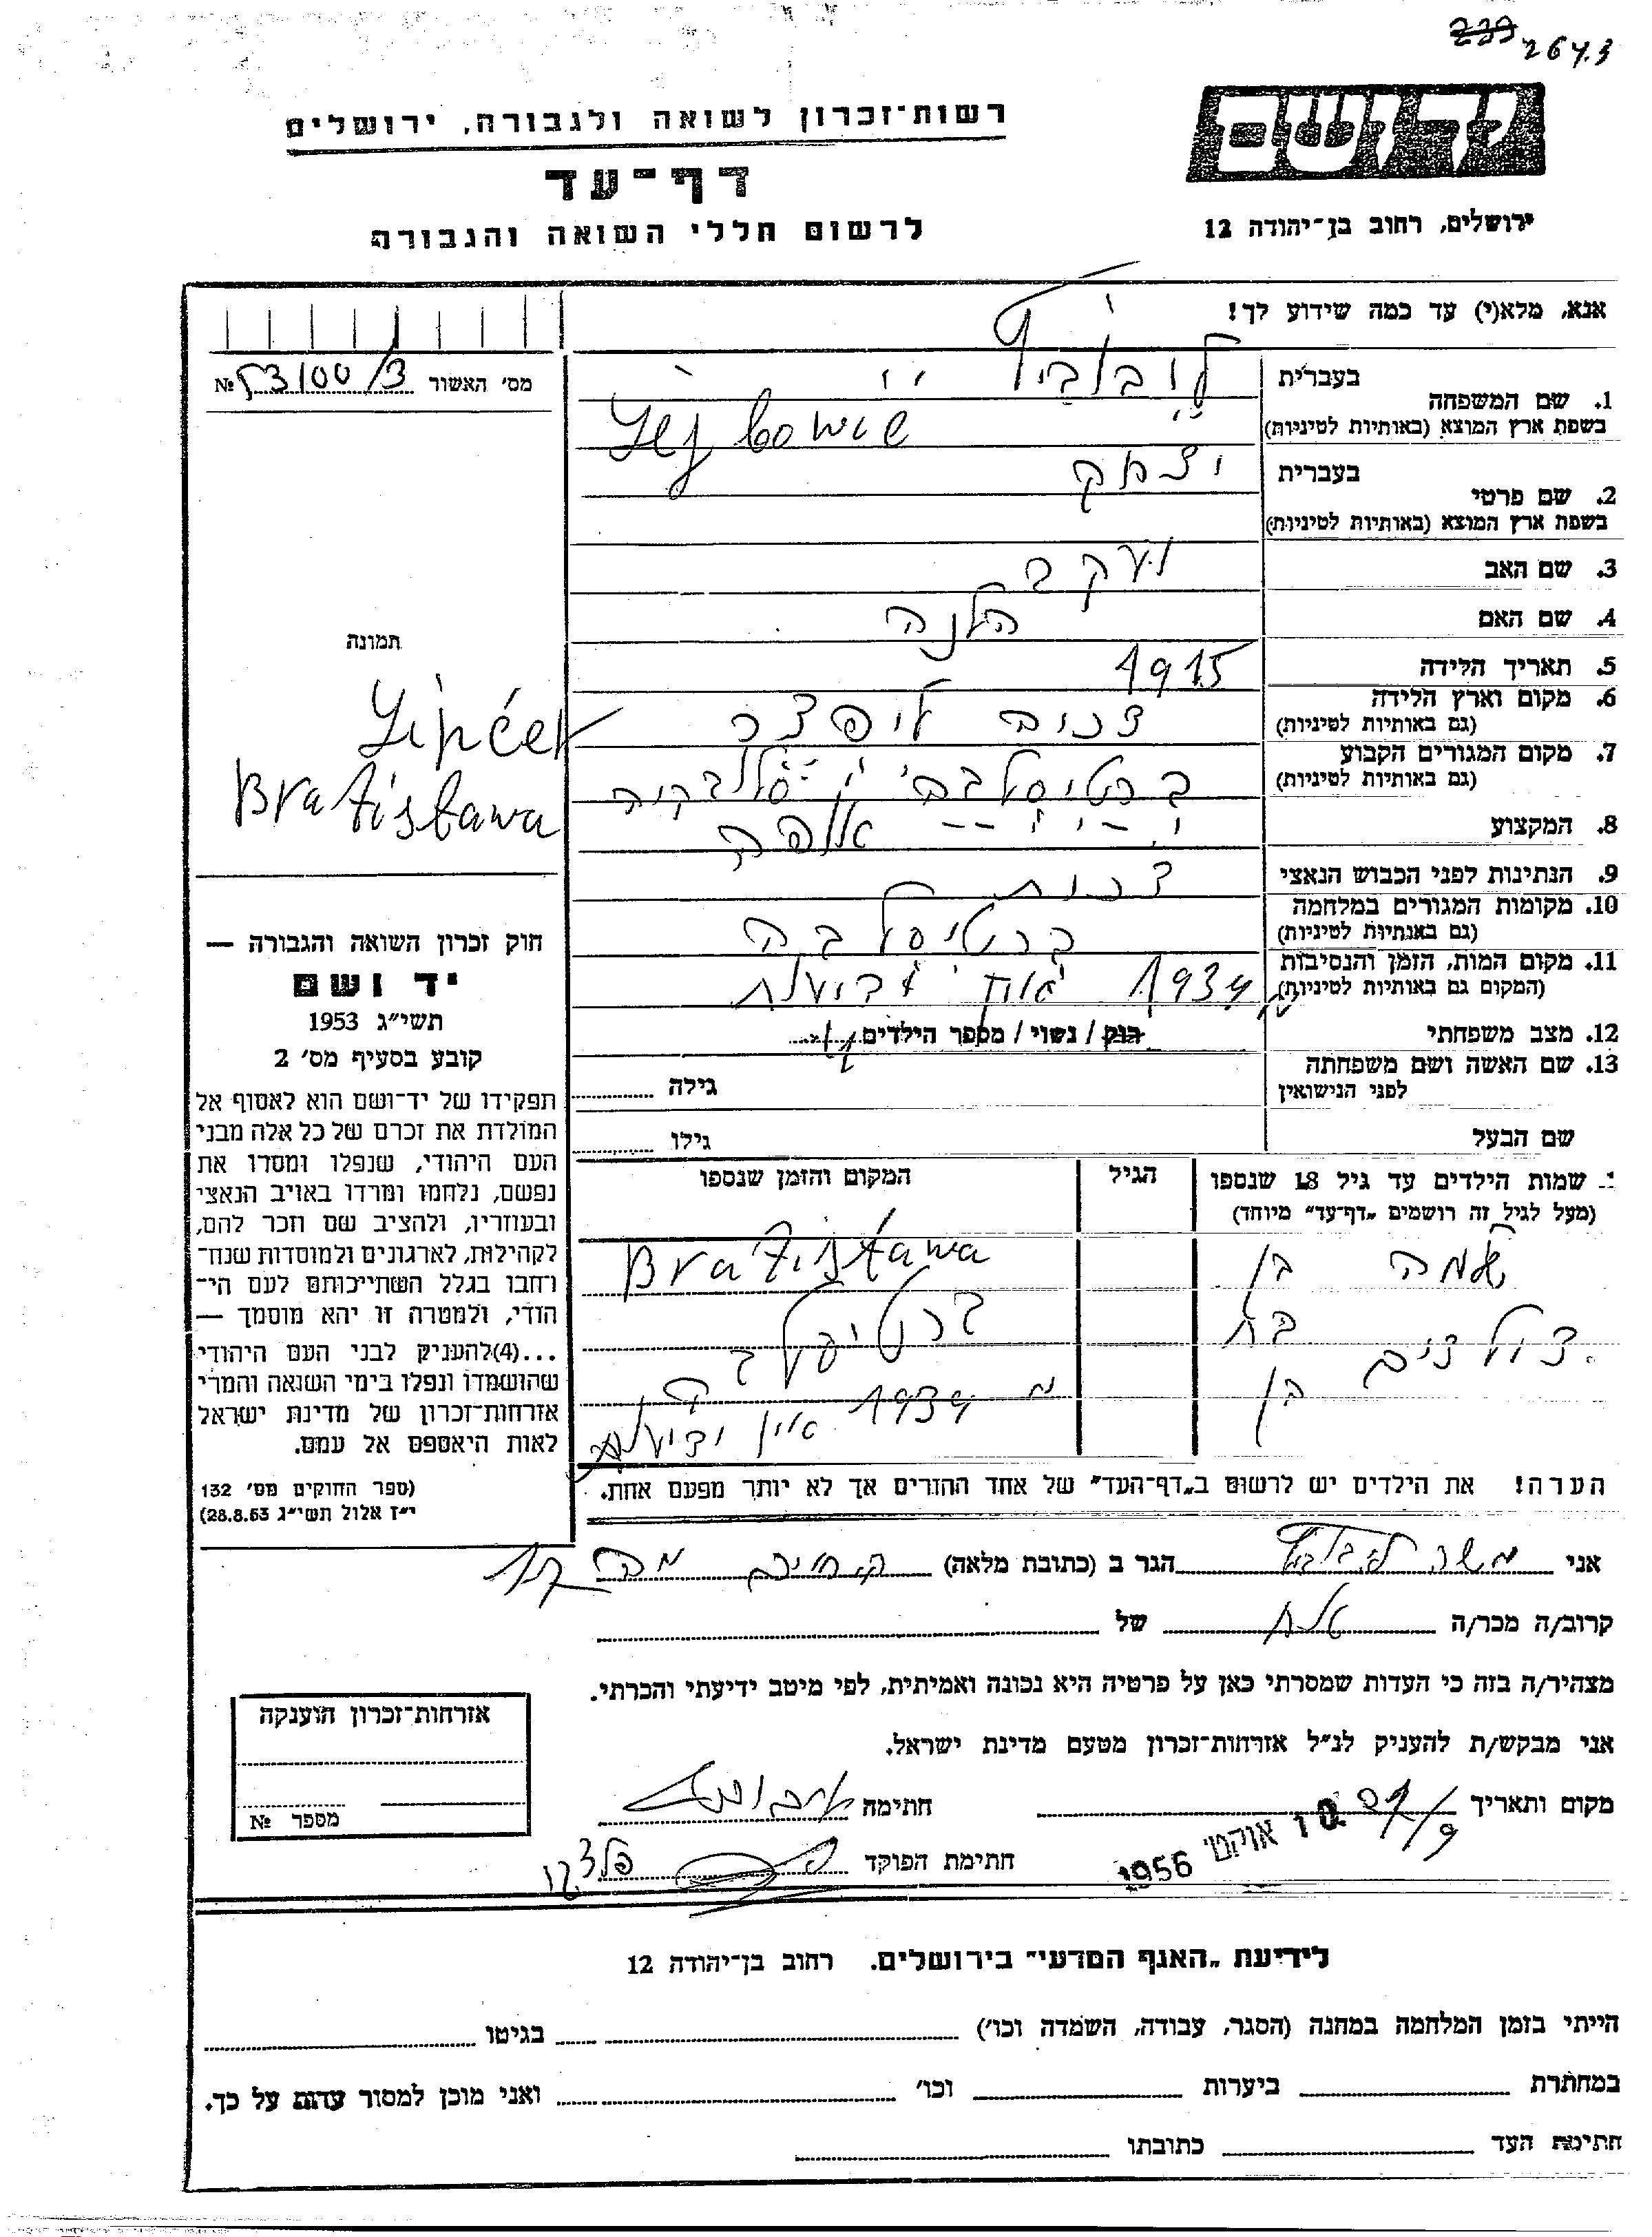 239 2643
יד ושם
רשות־זכרון לשואה ולגבורה, ירושלים
דף־עד
לרשום חללי השואה והגבורה
ירושלים, רחוב בן־יהודה 12
אנא, מלא(י) עד כמה שידוע לך!
מס׳ האשור № 53100/3
1. שם המשפחה
בעברית
בשפת ארץ המוצא (באותיות לטיניות)
2. שם פרטי
בעברית יצחק
בשפת ארץ המוצא (באותיות לטיניות)
3. שם האב יעקב
4. שם האם הלנה
5. תאריך הלידה 1915
6. מקום וארץ הלידה
(גם באותיות לטיניות)
7. מקום המגורים הקבוע
(גם באותיות לטיניות)
8. המקצוע אופה
9. הנתינות לפני הכבוש הנאצי
10. מקומות המגורים במלחמה ברטיסלבה
(גם באותיות לטיניות)
11. מקום המות, הזמן והנסיבות
(המקום גם באותיות לטיניות) 1939
12. מצב משפחתי רווק / נשוי / מספר הילדים
13. שם האשה ושם משפחתה
לפני הנישואין גילה
שם הבעל גילו
תמונה
Bratisława
חוק זכרון השואה והגבורה —
יד ושם
תשי״ג 1953
קובע בסעיף מס׳ 2
תפקידו של יד־ושם הוא לאסוף אל
המולדת את זכרם של כל אלה מבני
העם היהודי, שנפלו ומסרו את
נפשם, נלחמו ומרדו באויב הנאצי
ובעוזריו, ולהציב שם וזכר להם,
לקהילות, לארגונים ולמוסדות שנח־
רחבו בגלל השתייכותם לעם הי־
הודי, ולמטרה זו יהא מוסמך —
...(4)להעניק לבני העם היהודי
שהושמדו ונפלו בימי השואה והמרי
אזרחות־זכרון של מדינת ישראל
לאות היאספם אל עמם.
(ספר החוקים מס׳ 132
י״ז אלול תשי״ג 28.8.53)
שמות הילדים עד גיל 18 שנספו הגיל המקום והזמן שנספו
(מעל לגיל זה רושמים „דף־עד״ מיוחד)
שלמה בן Bratisława
בת ברטיסלבה
בן 1939 אין ידיעות
הערה! את הילדים יש לרשום ב„דף־העד״ של אחד ההורים אך לא יותר מפעם אחת.
אני משה הגר ב (כתובת מלאה)
קרוב/ה מכר/ה של
מצהיר/ה בזה כי העדות שמסרתי כאן על פרטיה היא נכונה ואמיתית, לפי מיטב ידיעתי והכרתי.
אני מבקש/ת להעניק לנ״ל אזרחות־זכרון מטעם מדינת ישראל.
מקום ותאריך חתימה
10 אוקט׳ 1956
חתימת הפוקד
אזרחות־זכרון הוענקה
מספר №
לידיעת „האגף המדעי״ בירושלים. רחוב בן־יהודה 12
הייתי בזמן המלחמה במחנה (הסגר, עבודה, השמדה וכו׳) בגיטו
במחתרת ביערות וכו׳ ואני מוכן למסור עדות על כך.
חתימת העד כתובתו